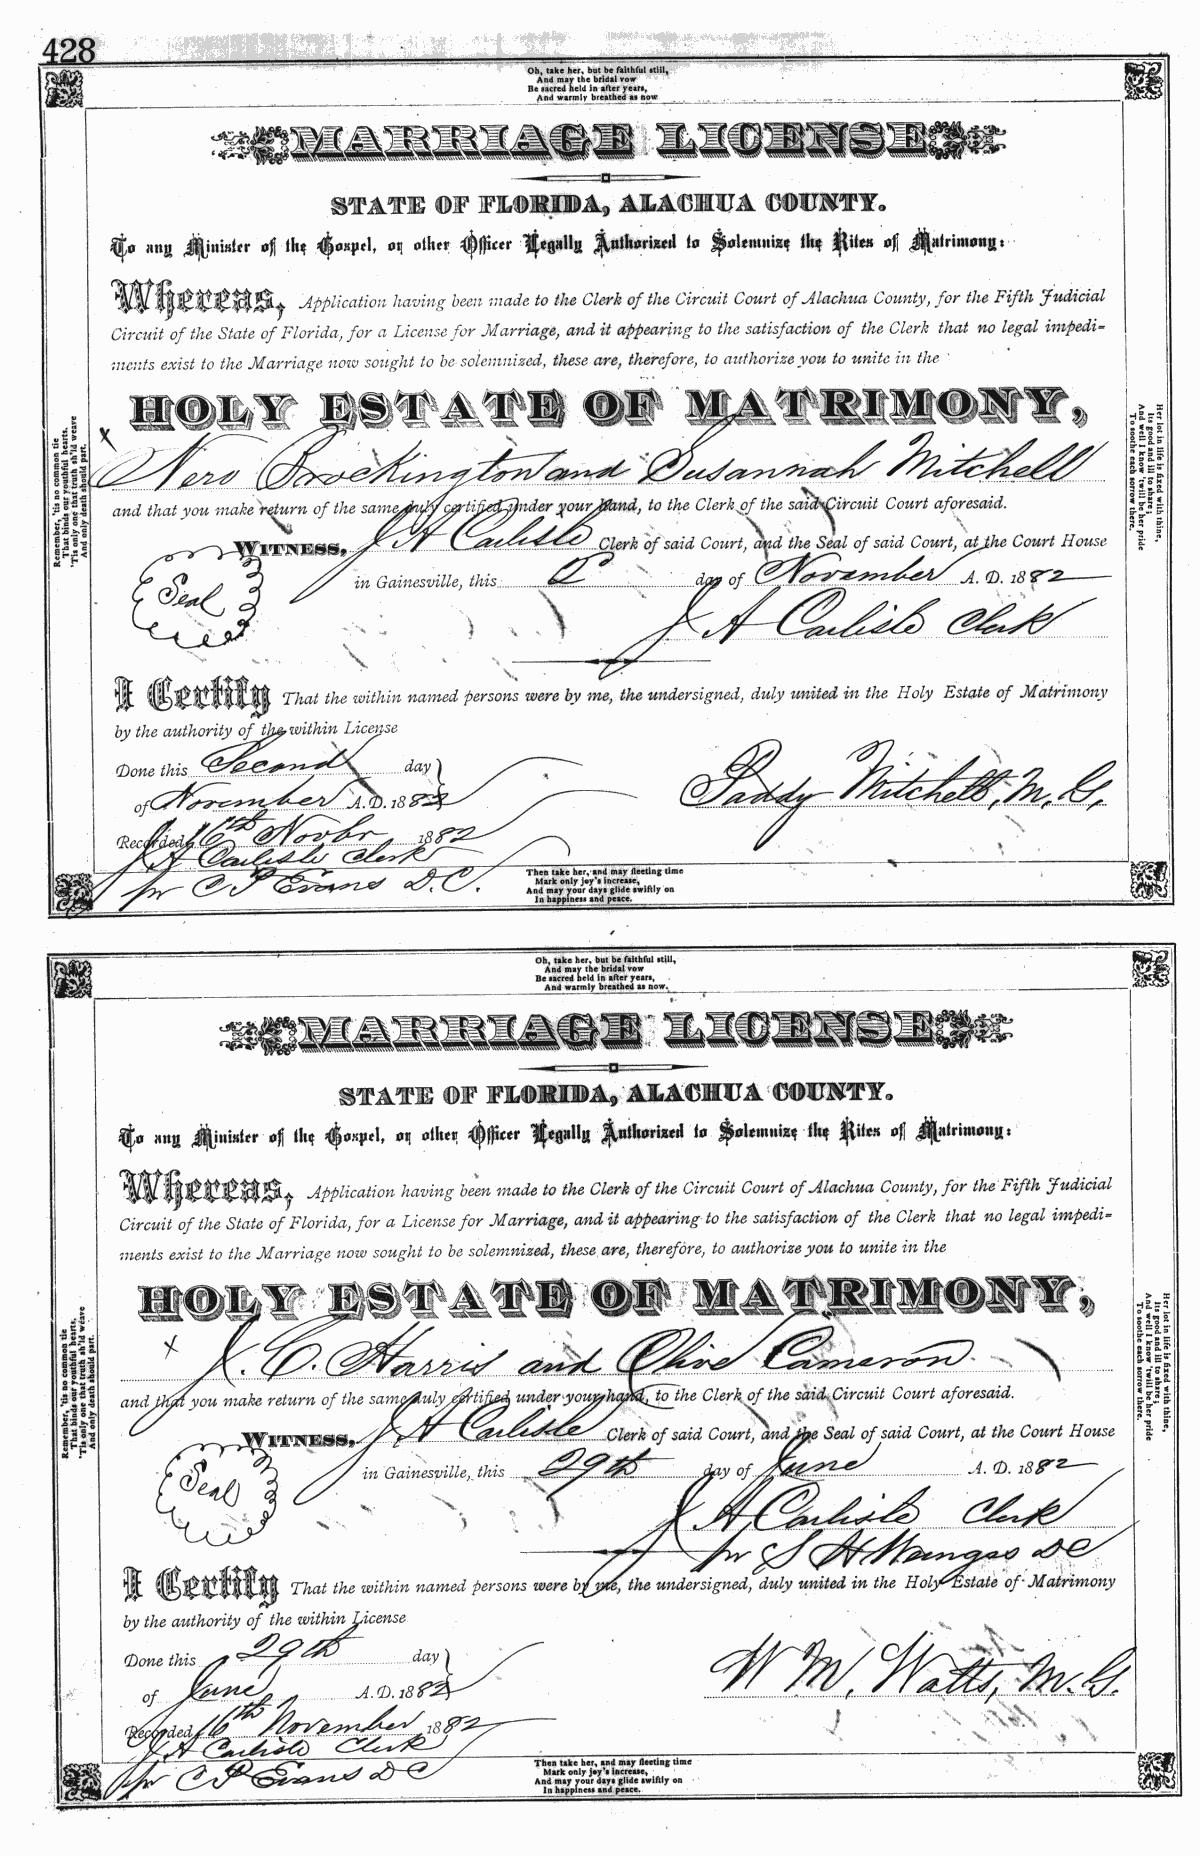 428
Oh, take her, but be faithful still,
And may the bridal vow
Be sacred held in after years,
And warmly breathed as now
MARRIAGE LICENSE
STATE OF FLORIDA, ALACHUA COUNTY.
To any Minister of the Gospel, or other Officer Legally Authorized to Solemnize the Rites of Matrimony:
Whereas, Application having been made to the Clerk of the Circuit Court of Alachua County, for the Fifth Judicial
Circuit of the State of Florida, for a License for Marriage, and it appearing to the satisfaction of the Clerk that no legal impedi-
ments exist to the Marriage now sought to be solemnized, these are, therefore, to authorize you to unite in the
HOLY ESTATE OF MATRIMONY,
x
Nero Brockington and Susannah Mitchell
and that you make return of the same duly certified under your hand, to the Clerk of the said Circuit Court aforesaid.
WITNESS, J A Carlisle Clerk of said Court, and the Seal of said Court, at the Court House
Seal
in Gainesville, this day of November A. D. 1882
J A Carlisle Clerk
I Certify That the within named persons were by me, the undersigned, duly united in the Holy Estate of Matrimony
by the authority of the within License
Done this Second day
of November A.D. 1882
Paddy Mitchell, M. G.
Recorded 16th Novbr 1882
J A Carlisle Clerk
pr C P Evans D.C.
Remember, 'tis no common tie
That binds our youthful hearts,
'Tis only one that truth sh'ld weave
And only death should part.
Her lot in life is fixed with thine,
Its good and ill to share;
And well I know 'twill be her pride
To soothe each sorrow there.
Then take her, and may fleeting time
Mark only joy's increase,
And may your days glide swiftly on
In happiness and peace.
Oh, take her, but be faithful still,
And may the bridal vow
Be sacred held in after years,
And warmly breathed as now.
MARRIAGE LICENSE
STATE OF FLORIDA, ALACHUA COUNTY.
To any Minister of the Gospel, or other Officer Legally Authorized to Solemnize the Rites of Matrimony:
Whereas, Application having been made to the Clerk of the Circuit Court of Alachua County, for the Fifth Judicial
Circuit of the State of Florida, for a License for Marriage, and it appearing to the satisfaction of the Clerk that no legal impedi-
ments exist to the Marriage now sought to be solemnized, these are, therefore, to authorize you to unite in the
HOLY ESTATE OF MATRIMONY,
x
J. C. Harris and Olive Cameron
and that you make return of the same duly certified under your hand, to the Clerk of the said Circuit Court aforesaid.
WITNESS, J A Carlisle Clerk of said Court, and the Seal of said Court, at the Court House
Seal
in Gainesville, this 29th day of June A. D. 1882
J A Carlisle Clerk
pr S H DC
I Certify That the within named persons were by me, the undersigned, duly united in the Holy Estate of Matrimony
by the authority of the within License
Done this 29th day
of June A.D. 1882
W M. Watts, M. G.
Recorded 16th November 1882
J A Carlisle Clerk
pr C P Evans D C
Remember, 'tis no common tie
That binds our youthful hearts,
'Tis only one that truth sh'ld weave
And only death should part.
Her lot in life is fixed with thine,
Its good and ill to share;
And well I know 'twill be her pride
To soothe each sorrow there.
Then take her, and may fleeting time
Mark only joy's increase,
And may your days glide swiftly on
In happiness and peace.